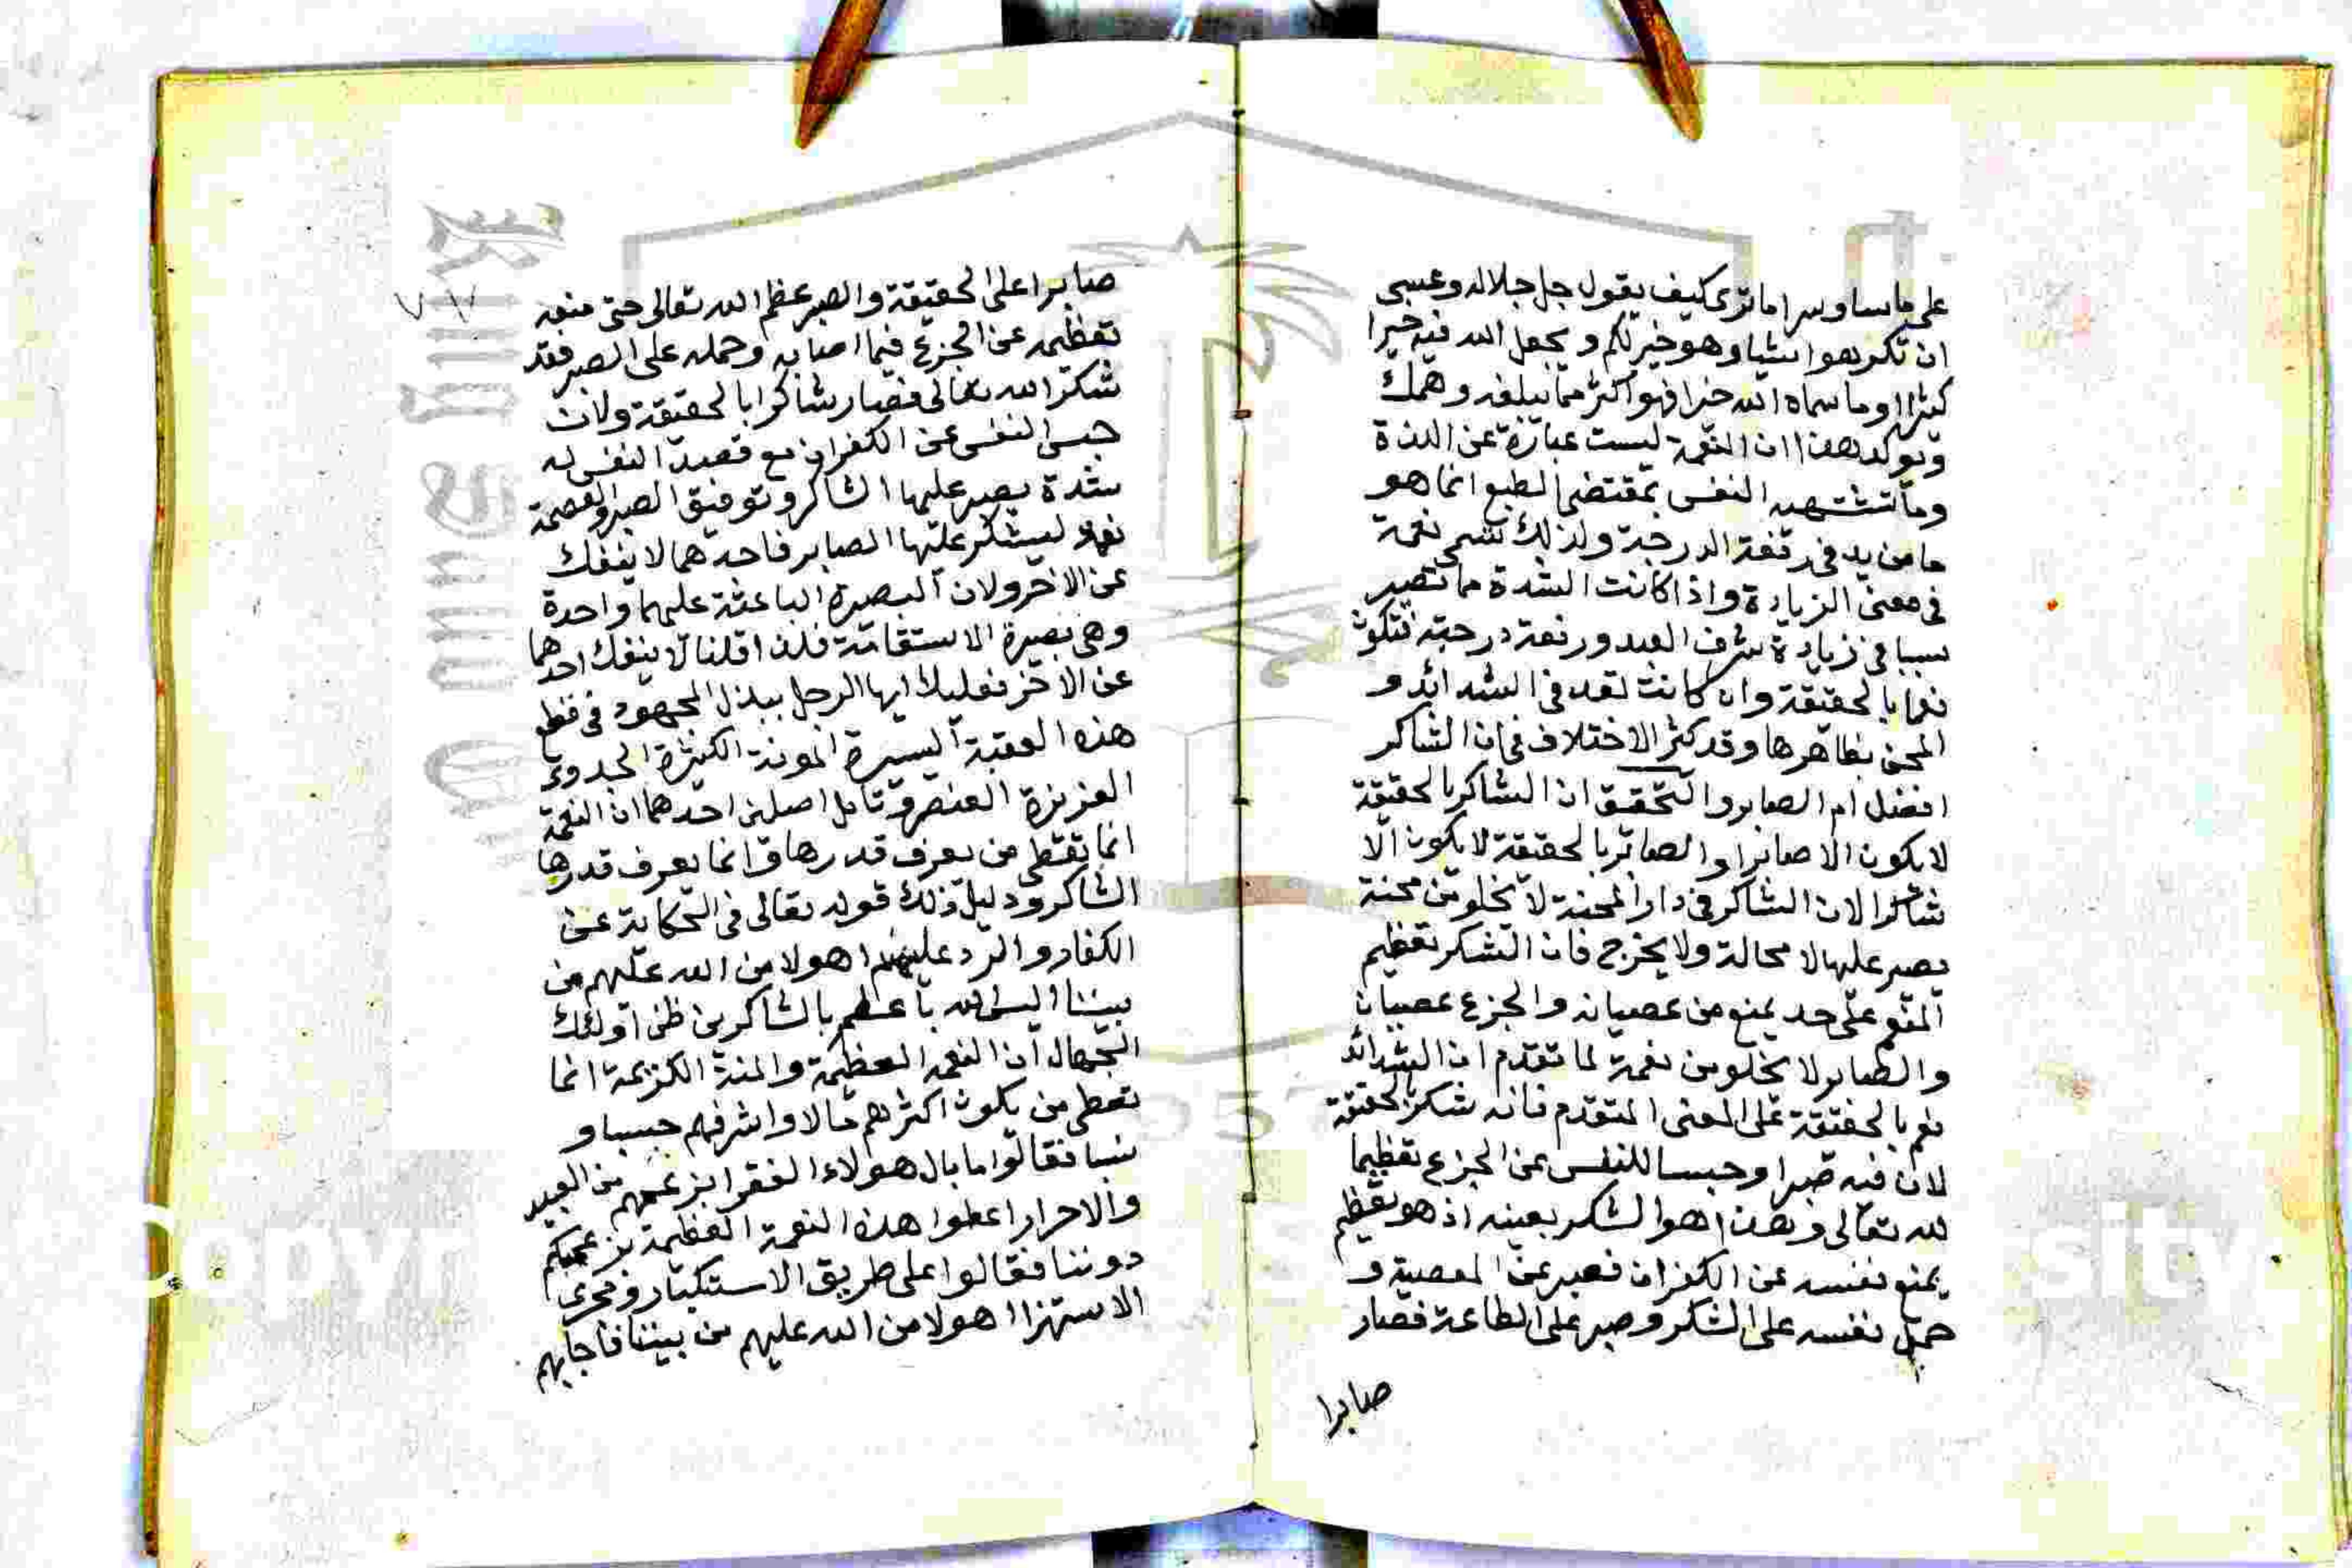 على ماسا وسر اما ترى كيف يقول جل جلاله وعسى
ان تكرهوا شيا وهو خير لكم ويجعل الله فيه خيرا
كثيرا وما سماه الله خيرا فهو اكثر مما يبلغه وهمك
وتوكد هذا ان النعمة ليست عبارة عن اللذة
وما تشتهيه النفس بمقتضى الطبع انما هو
ما من يد في رفعة الدرجة ولذلك تسمى نعمة
في معنى الزيادة واذا كانت الشدة مما تصير
سببا في زيادة شرف العبد ورفعة درجته فتكون
نعما بالحقيقة وان كانت تعد في الشدائد و
المحن بظاهرها وقد كثر الاختلاف في ان الشاكر
افضل ام الصابر والتحقيق ان الشاكر بالحقيقة
لا يكون الا صابرا والصابر بالحقيقة لا يكون الا
شاكرا لان الشاكر في دار المحنة لا يخلو من محنة
يصبر عليها لا محالة ولا يخرج فان الشكر تعظيم
المنعم على حد يمنع من عصيانه والجزع عصيان
والصابر لا يخلو من نعمة لما تقدم ان الشدائد
نعم بالحقيقة على المعنى المتقدم فانه شكر بالحقيقة
لان فيه صبرا وحبسا للنفس عن الجزع تعظيما
لله تعالى وهذا هو الشكر بعينه اذ هو تعظيم
يمنع نفسه عن الكفران فصبر عن المعصية و
حمل نفسه على الشكر وصبر على الطاعة فصار
صابرا
٧٧
صابرا على الحقيقة والصبر عظم الله تعالى حتى منعه
تعظيمه عن الجزع فيما اصابه وحمله على الصبر فقد
شكر الله تعالى فصار شاكرا بالحقيقة ولان
حبس النفس عن الكفران مع قصد النفس له
شدة يصبر عليها الشاكر وتوفيق الصبر والعصمة
نعمة ليشكر عليها الصابر فاحدهما لا ينفك
عن الاخر ولان البصيرة الباعثة عليهما واحدة
وهي بصيرة الاستقامة فلذا قلنا لا ينفك احدهما
عن الاخر فعليك ايها الرجل ببذل المجهود في قطع
هذه العقبة اليسيرة المونة الكثيرة الجدوى
العزيزة العنصر وتامل اصلين احدهما ان النعمة
انما تعطى من يعرف قدرها وانما يعرف قدرها
الشاكر ودليل ذلك قوله تعالى في الحكاية عن
الكفار والرد عليهم اهولا من الله عليهم من
بيننا اليس الله باعلم بالشاكرين ظن اولئك
الجهال ان النعمة العظيمة والمنة الكريمة انما
تعطى من يكون اكثرهم مالا واشرفهم حسبا و
نسبا فقالوا ما بال هولاء الفقرا بزعمهم من العبيد
والاحرار اعطوا هذه النعمة العظيمة بزعمكم
دوننا فقالوا على طريق الاستكبار ومجرى
الاستهزا اهولا من الله عليهم من بيننا فاجابهم